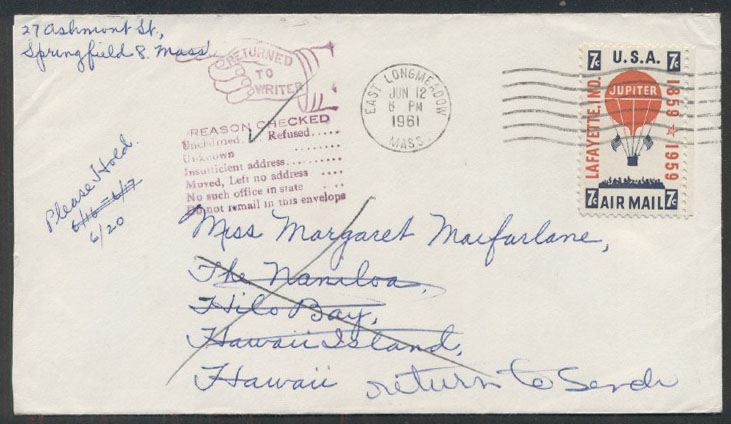 27 Ashmont St,
Springfield 8. Mass
RETURNED
TO
WRITER
REASON CHECKED
Unclaimed..... Refused.....
Unknown ........
Insufficient address........
Moved, Left no address ....
No such office in state ....
Do not remail in this envelope
Please Hold.
6/16 - 6/17
6/20
EAST LONGMEADOW
JUN 12
6 PM
1961
MASS.
7c U.S.A. 7c
LAFAYETTE, IND.
JUPITER
1859 ★ 1959
7c AIR MAIL 7c
Miss Margaret Macfarlane,
The Naniloa,
Hilo Bay,
Hawaii Island,
Hawaii
return to Sender